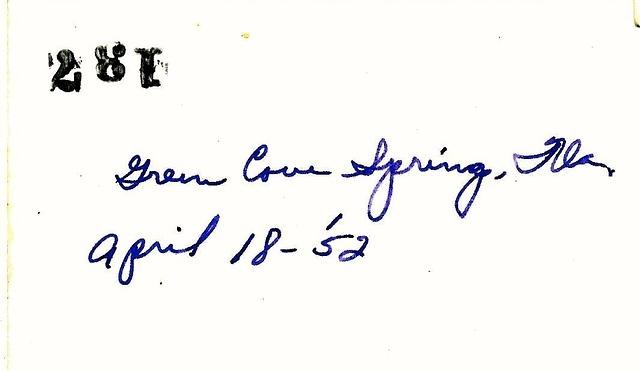 281
Green Cove Spring, Fla.
April 18-'52